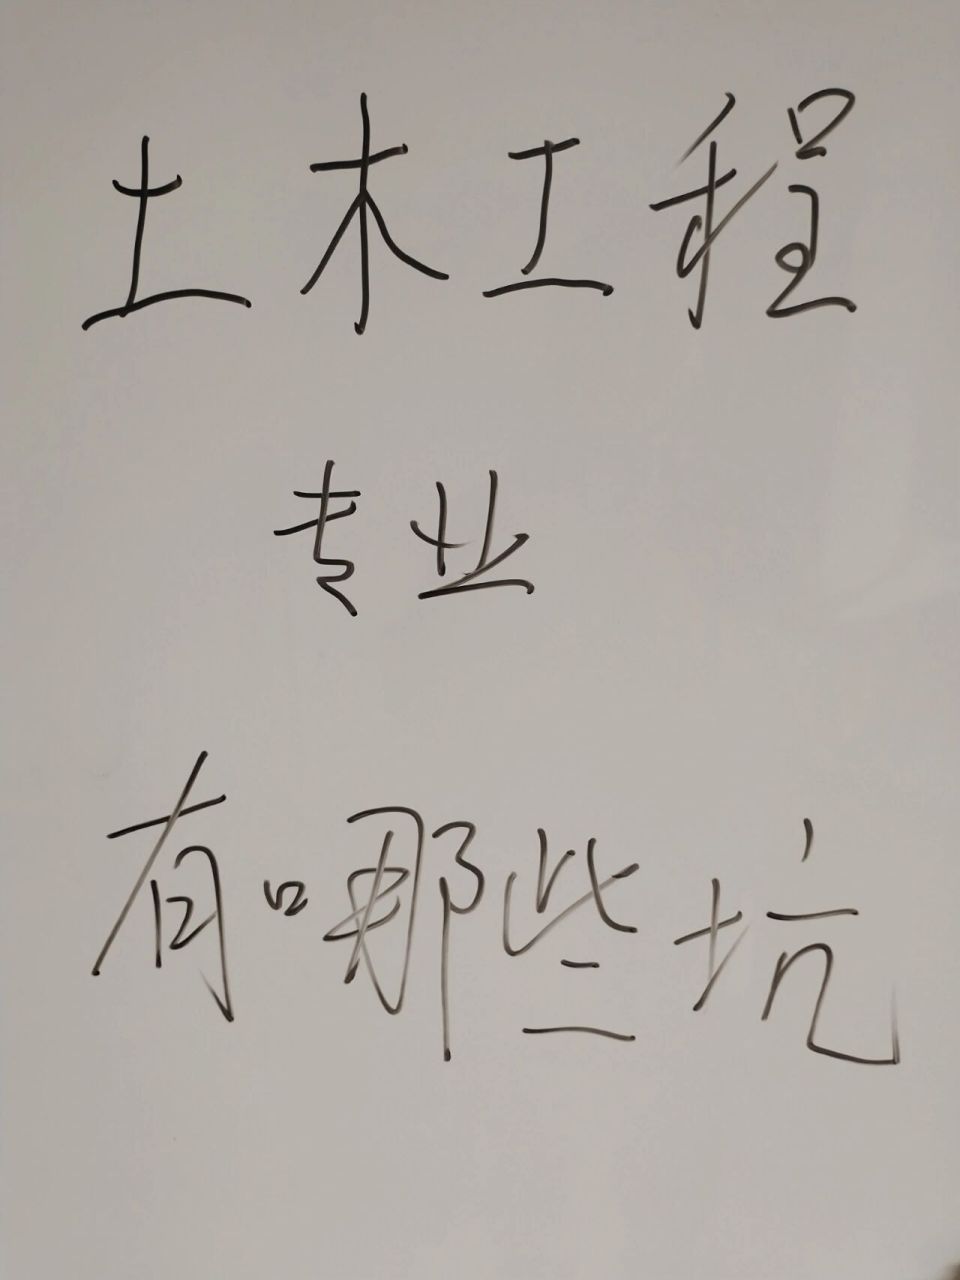 土木工程
专业
有哪些坑